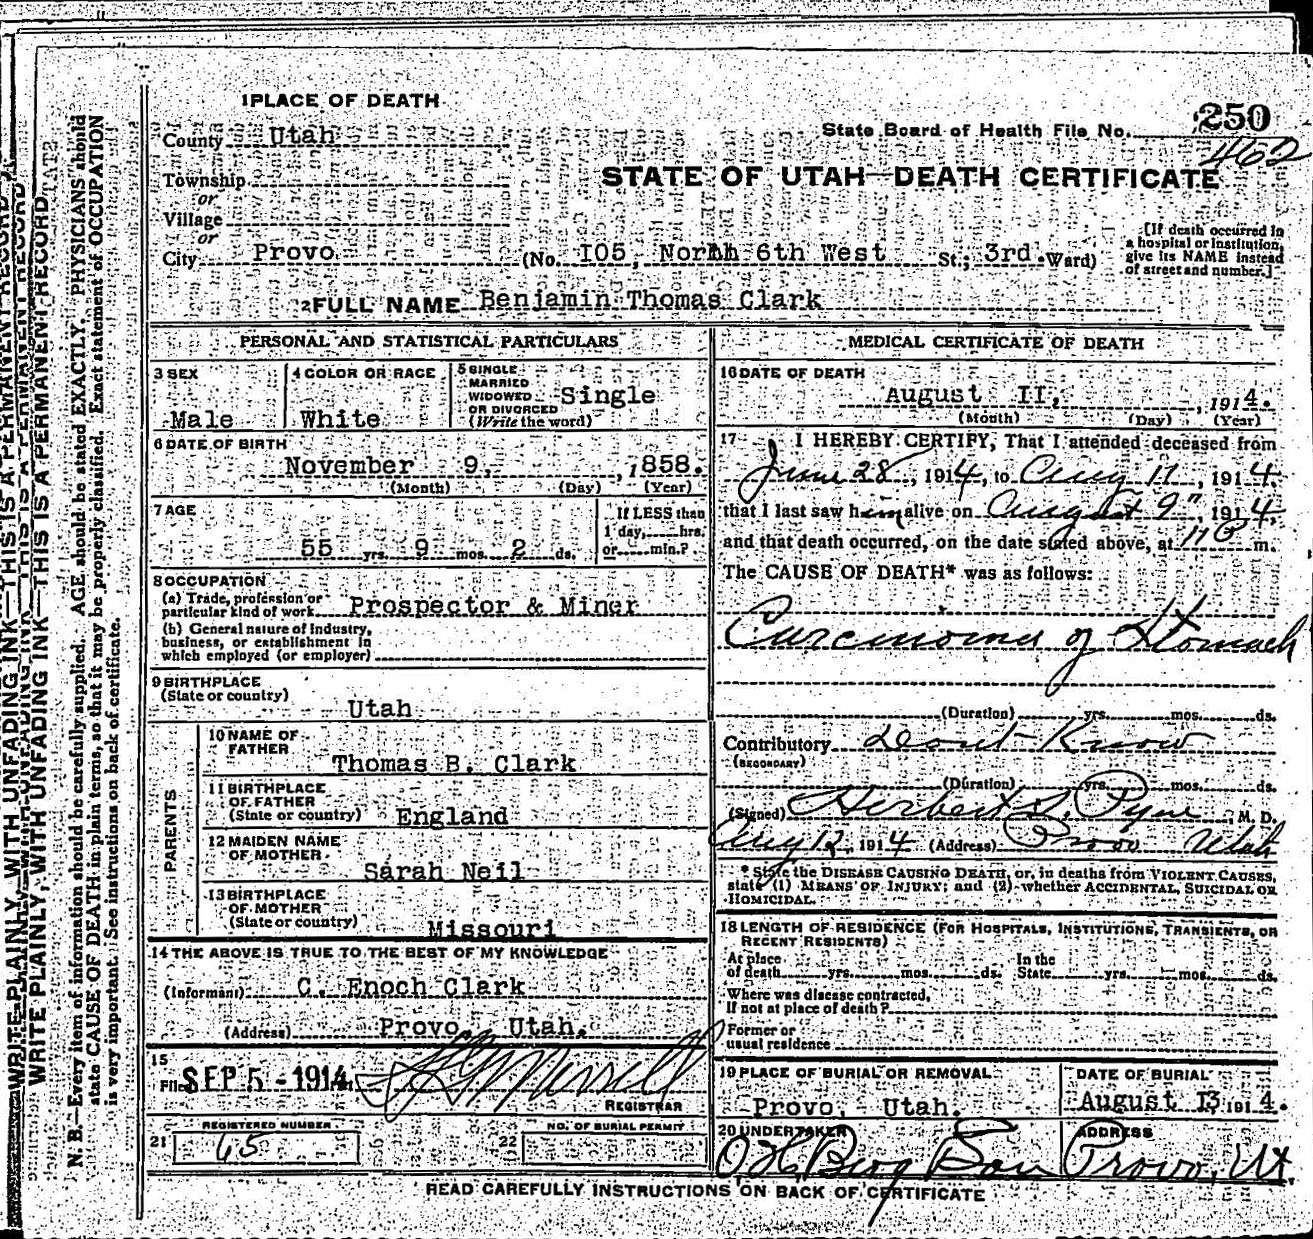 1 PLACE OF DEATH
County Utah
State Board of Health File No. 250
462
Township
or
STATE OF UTAH—DEATH CERTIFICATE
Village
or
City Provo (No. I05, North 6th West St.; 3rd. Ward)
[If death occurred in
a hospital or institution,
give its NAME instead
of street and number.]
2 FULL NAME Benjamin Thomas Clark
PERSONAL AND STATISTICAL PARTICULARS
3 SEX
Male
4 COLOR OR RACE
White
5 SINGLE
MARRIED
WIDOWED
OR DIVORCED
(Write the word)
Single
6 DATE OF BIRTH
November 9, 1858.
(Month) (Day) (Year)
7 AGE
55 yrs. 9 mos. 2 ds.
If LESS than
1 day, hrs.
or min.?
8 OCCUPATION
(a) Trade, profession or
particular kind of work Prospector & Miner
(b) General nature of Industry,
business, or establishment in
which employed (or employer)
9 BIRTHPLACE
(State or country)
Utah
PARENTS
10 NAME OF
FATHER
Thomas B. Clark
11 BIRTHPLACE
OF FATHER
(State or country) England
12 MAIDEN NAME
OF MOTHER
Sarah Neil
13 BIRTHPLACE
OF MOTHER
(State or country)
Missouri
14 THE ABOVE IS TRUE TO THE BEST OF MY KNOWLEDGE
(Informant) C. Enoch Clark
(Address) Provo, Utah.
15
Filed SEP 5 - 1914
Merrell
REGISTRAR
REGISTERED NUMBER
21 65
NO. OF BURIAL PERMIT
22
MEDICAL CERTIFICATE OF DEATH
16 DATE OF DEATH
August II, , 1914.
(Month) (Day) (Year)
17 I HEREBY CERTIFY, That I attended deceased from
June 28, 1914, to Aug 11, 1914,
that I last saw him alive on August 9", 1914,
and that death occurred, on the date stated above, at m.
The CAUSE OF DEATH* was as follows:
Carcinoma of Stomach
(Duration) yrs. mos. ds.
Contributory Dont Know
(SECONDARY)
(Duration) yrs. mos. ds.
(Signed) Herbert S. Pyne, M. D.
Aug 12, 1914 (Address) Provo Utah
* State the DISEASE CAUSING DEATH, or, in deaths from VIOLENT CAUSES,
state (1) MEANS OF INJURY; and (2) whether ACCIDENTAL, SUICIDAL OR
HOMICIDAL.
18 LENGTH OF RESIDENCE (FOR HOSPITALS, INSTITUTIONS, TRANSIENTS, OR
RECENT RESIDENTS)
At place
of death yrs. mos. ds.
In the
State yrs. mos. ds.
Where was disease contracted,
If not at place of death?
Former or
usual residence
19 PLACE OF BURIAL OR REMOVAL
Provo, Utah.
DATE OF BURIAL
August I3 1914.
20 UNDERTAKER
O H Berg Son
ADDRESS
Provo, Ut
READ CAREFULLY INSTRUCTIONS ON BACK OF CERTIFICATE
WRITE PLAINLY, WITH UNFADING INK—THIS IS A PERMANENT RECORD
N. B.—Every item of information should be carefully supplied. AGE should be stated EXACTLY. PHYSICIANS should
state CAUSE OF DEATH in plain terms, so that it may be properly classified. Exact statement of OCCUPATION
is very important. See instructions on back of certificate.